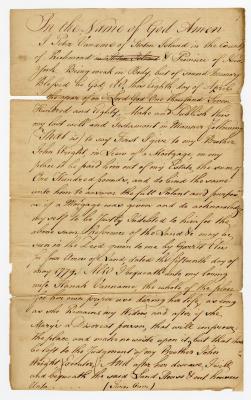 In the Name of God Amen
I John Vanname of Staten Island in the County
of Richmond and Province of New
York. Being weak in Body, but of sound Memory
Blessed be God, this eighth day of April
the year of our Lord God One Thousand Seven
Hundred and Eighty, Make and Publish this
my last will and Testament in Manner following
(That is) to say First I give to my Brother
John Wright in Lieu of a Mortgage on my
place to be paid him out of my Estate, the sum of
One Hundred pounds, and to bind the same
unto him to answer the full Intent and purpose
as if a Mortgage was given and do acknowledge
my self to be Justly Indebted to him for the
above sum, Reference of the Land &c may be
seen in the Deed given to me by
for four Acres of Land, dated the fifteenth day of
May 1779. Also I bequeath unto my loving
wife Hanah Vanname, the whole of the place
for her own proper use during her life, as long
as she Remains my Widow and after if she
Marrys a Discreet person, that will improve
the place and make no waste upon it, but that to
be left to the Judgement of my Brother John
Wright Executor, And after her decease, I will
and bequeath the said Land House & out houses
(Turn Over)